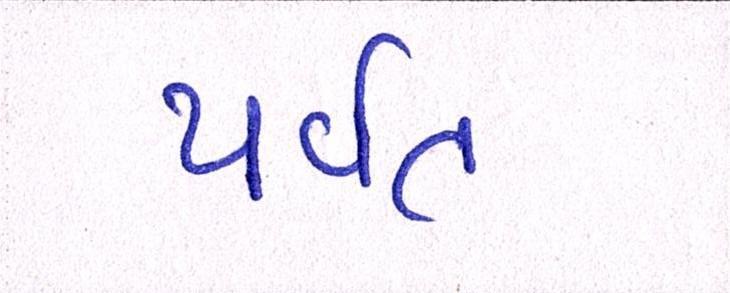 પર્વત